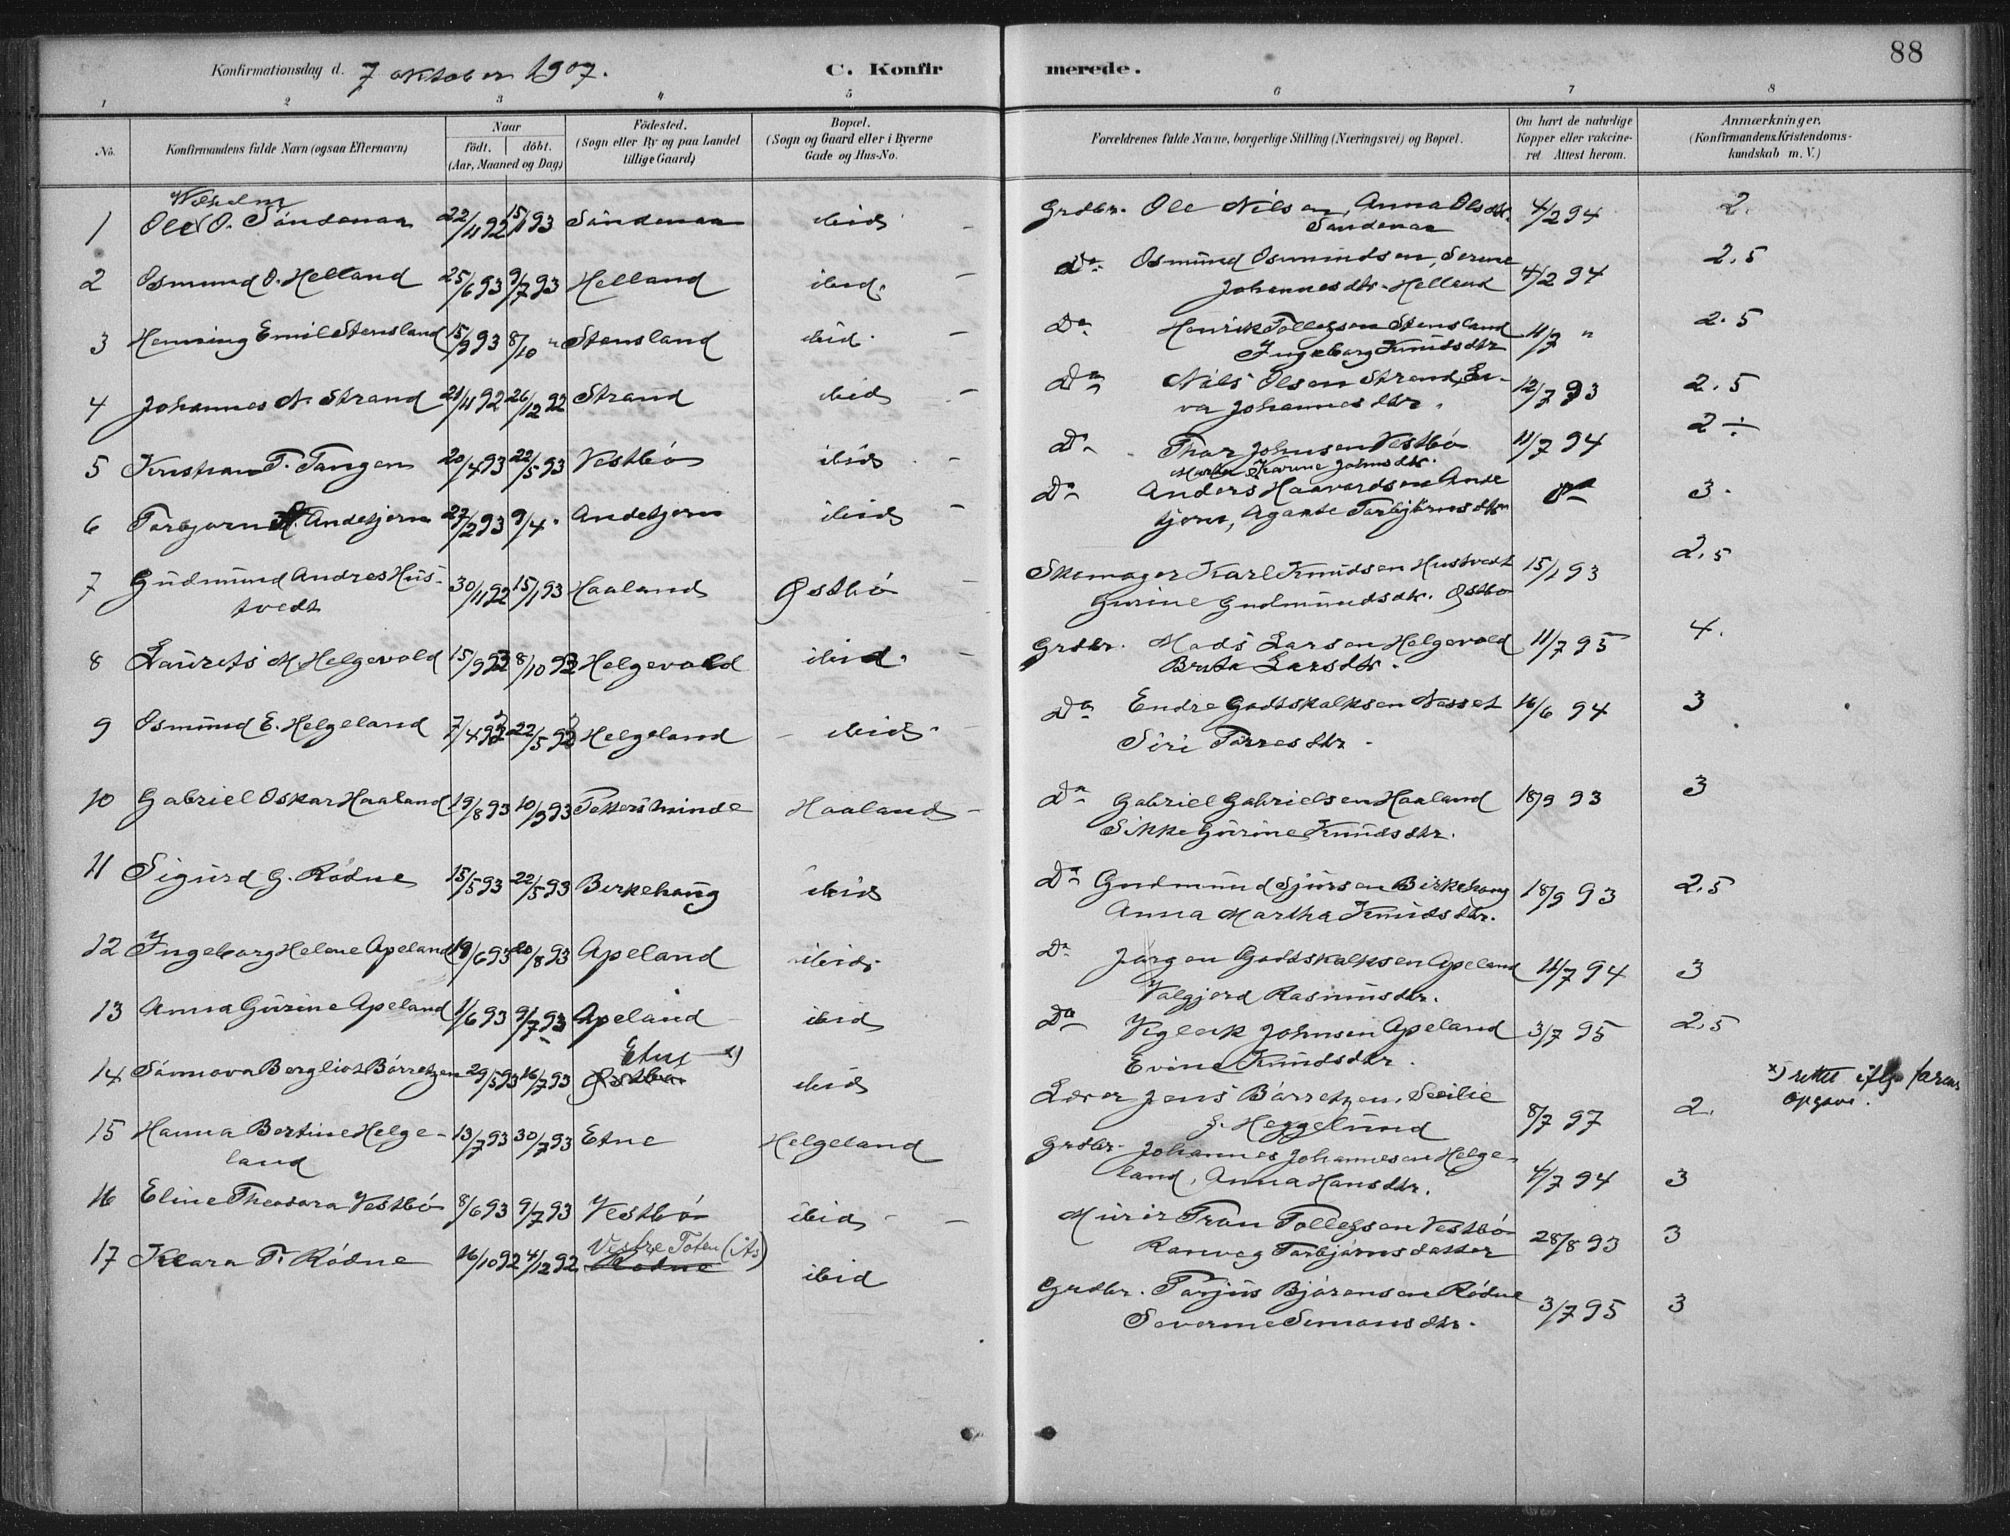 88
Konfirmationsdag d. 7 oktober 1907. C. Konfirmerede.
1 2 3 4 5 6 7 8
No. Konfirmandens fulde Navn (ogsaa Efternavn) Naar födt. döbt. (Aar, Maaned og Dag) Födested. (Sogn eller By og paa Landet tillige Gaard) Bopæl. (Sogn og Gaard eller i Byerne Gade og Hus-No. Forældrenes fulde Navne, borgerlige Stilling (Næringsvei) og Bopæl. Om havt de naturlige Kopper eller vakcineret Attest herom. Anmærkninger. (Konfirmandens Kristendomskundskab m. V.)
Wilhelm
1 Ole O. Söndenaa 22/11 92 15/1 93 Söndenaa ibid Grdbr. Ole Nilsen, Anna Olsdtr. 4/2 94 2.
Söndenaa
2 Osmund O. Helland 25/6 93 9/7 93 Helland ibid. Do Osmund Osmundsen, Serine 4/2 94 2.5
Johannesdtr. Helland
3 Henning Emil Stensland 15/9 93 8/10 " Stensland ibid. Do Henrik Tollefsen Stensland 11/7 " 2.5
Ingeborg Knudsdtr
4 Johannes N. Strand 21/11 92 26/12 92 Strand ibid Do Nils Olsen Strand, 12/7 93 2.5
Johannesdtr.
5 Kristian T. Tangen 20/4 93 22/5 93 Vestbö ibid Do Thor Johnsen Vestbö 11/7 94 2 ÷
Martha Karine Johnsdtr.
6 Torbjørn A. Andetjern 27/2 93 9/4 " Andetjern ibid Do Anders Haavardsen Ande Do 3.
tjern, Agante Torbjørnsdtr
7 Gudmund Andres Hus- 30/11 92 15/1 93 Haaland Østbö Skomager Karl Knudsen Hustvedt 15/1 93 2.5
tvedt Gurine Gudmundsdtr. Østbö
8 Laurits M. Helgevold 15/9 92 8/10 92 Helgevold ibid. Grdbr. Mads Larsen Helgevold 11/7 95 4.
Brita Larsdtr.
9 Osmund E. Helgeland 7/4 92 22/5 92 Helgeland ibid. Do Endre Godtskalksen Nesset 16/6 94 3
Siri Tørresdtr.
10 Gabriel Oskar Haaland 19/8 93 10/9 93 Haaland Do Gabriel Gabrielsen Haaland 18/9 93 3
Sikke Gurine Knudsdtr.
11 Sigurd G. Rödne 15/5 93 22/5 93 Birkehaug ibid Do Gudmund Sjursen Birkehaug 18/9 93 2.5
Anna Martha Knudsdtr.
12 Ingeborg Helene Apeland 19/6 93 20/8 93 Apeland ibid. Do Jørgen Godtskalksen Apeland 11/7 94 3
Valgjerd Rasmusdtr.
13 Anna Gurine Apeland 1/6 93 9/7 93 Apeland ibid Do Vigleik Johnsen Apeland 3/7 95 2.5
Evine Knudsdtr.
14 Sönnøva Bergliot Börretzen 29/5 93 16/7 93 Østbö Etne x) ibid Lærer Jens Börretzen, Secilie 8/7 97 2. x) rettet ifölge farens
Heggelund Opgave.
15 Hanna Bertine Helge- 13/7 93 30/7 93 Etne Helgeland Grdbr. Johannes Johannesen Helge- 4/7 94 3
land land, Anna Hansdtr.
16 Eline Theodora Vestbö 8/6 93 9/7 93 Vestbö ibid Murer Tron Tollefsen Vestbö 28/8 93 3
Ranveg Torbjörnsdatter
17 Klara T. Rödne 16/10 92 4/12 92 Rödne Vestre Toten (its) ibid Grdbr. Torjus Björensen Rödne 3/7 95 3
Severine Simonsdtr.